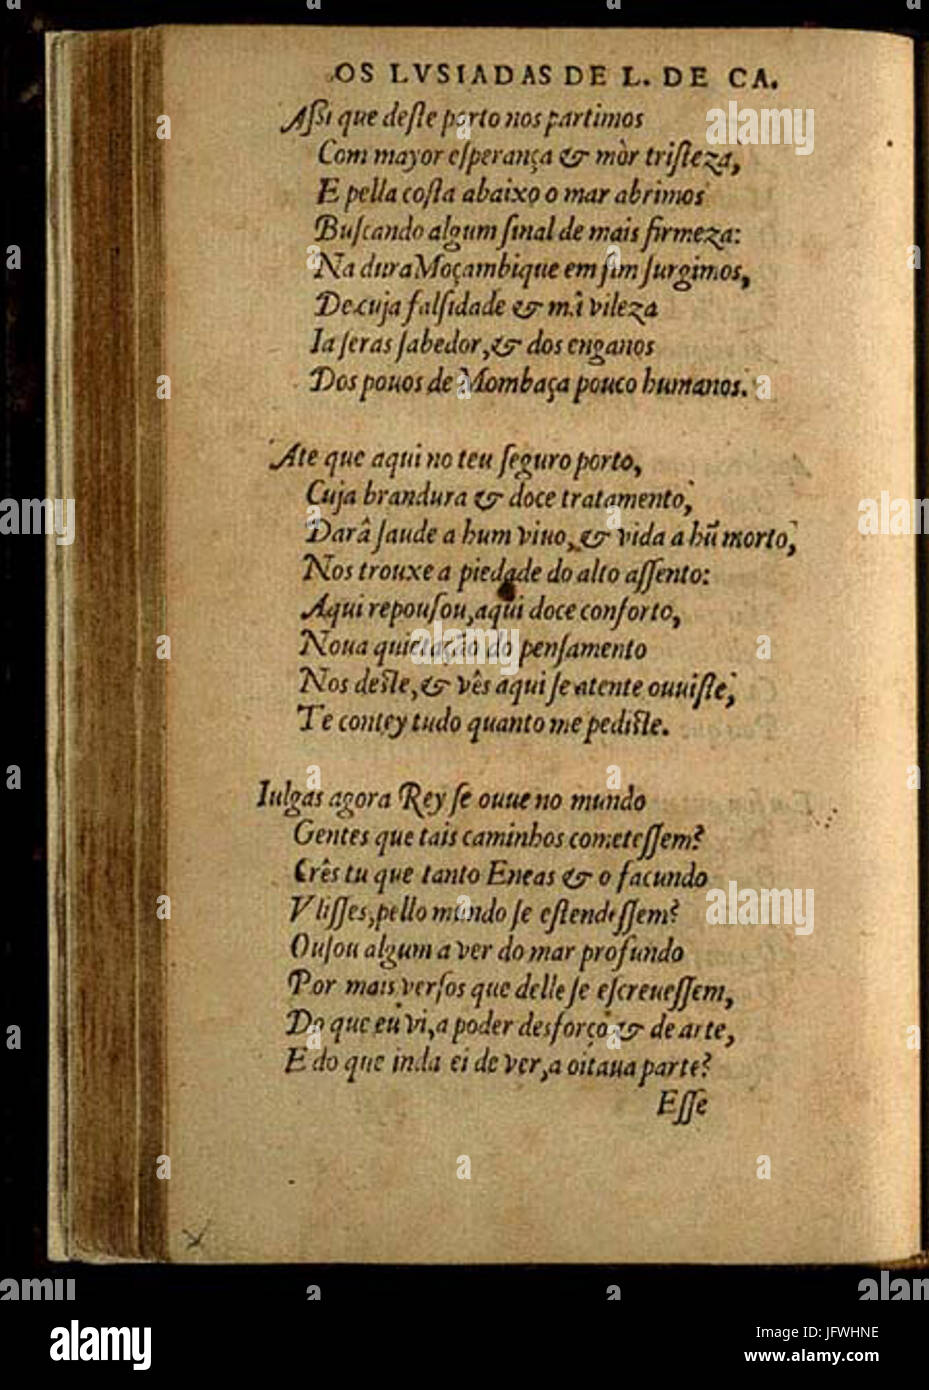 OS LVSIADAS DE L. DE CA.
Aſsi que deſte porto nos partimos
Com mayor eſperança & mòr triſteza,
E pella coſta abaixo o mar abrimos
Buſcando algum ſinal de mais firmeza:
Na dura Moçambique em fim ſurgimos,
De cuja falſidade & mâ vileza
Ia ſeras ſabedor, & dos enganos
Dos pouos de Mombaça pouco humanos.
Ate que aqui no teu ſeguro porto,
Cuja brandura & doce tratamento,
Darâ ſaude a hum viuo, & vida a hũ morto,
Nos trouxe a piedade do alto aſſento:
Aqui repouſou, aqui doce conforto,
Noua quietação do penſamento
Nos deſte, & vês aqui ſe atente ouuiſte,
Te contey tudo quanto me pediſte.
Iulgas agora Rey ſe ouue no mundo
Gentes que tais caminhos cometeſſem?
Crês tu que tanto Eneas & o facundo
Vliſſes, pello mundo ſe eſtendeſſem?
Ouſou algum a ver do mar profundo
Por mais verſos que delle ſe eſcreueſſem,
Do que eu vi, a poder desforço & de arte,
E do que inda ei de ver, a oitaua parte?
Eſſe
alamy
Image ID: JFWHNE
www.alamy.com